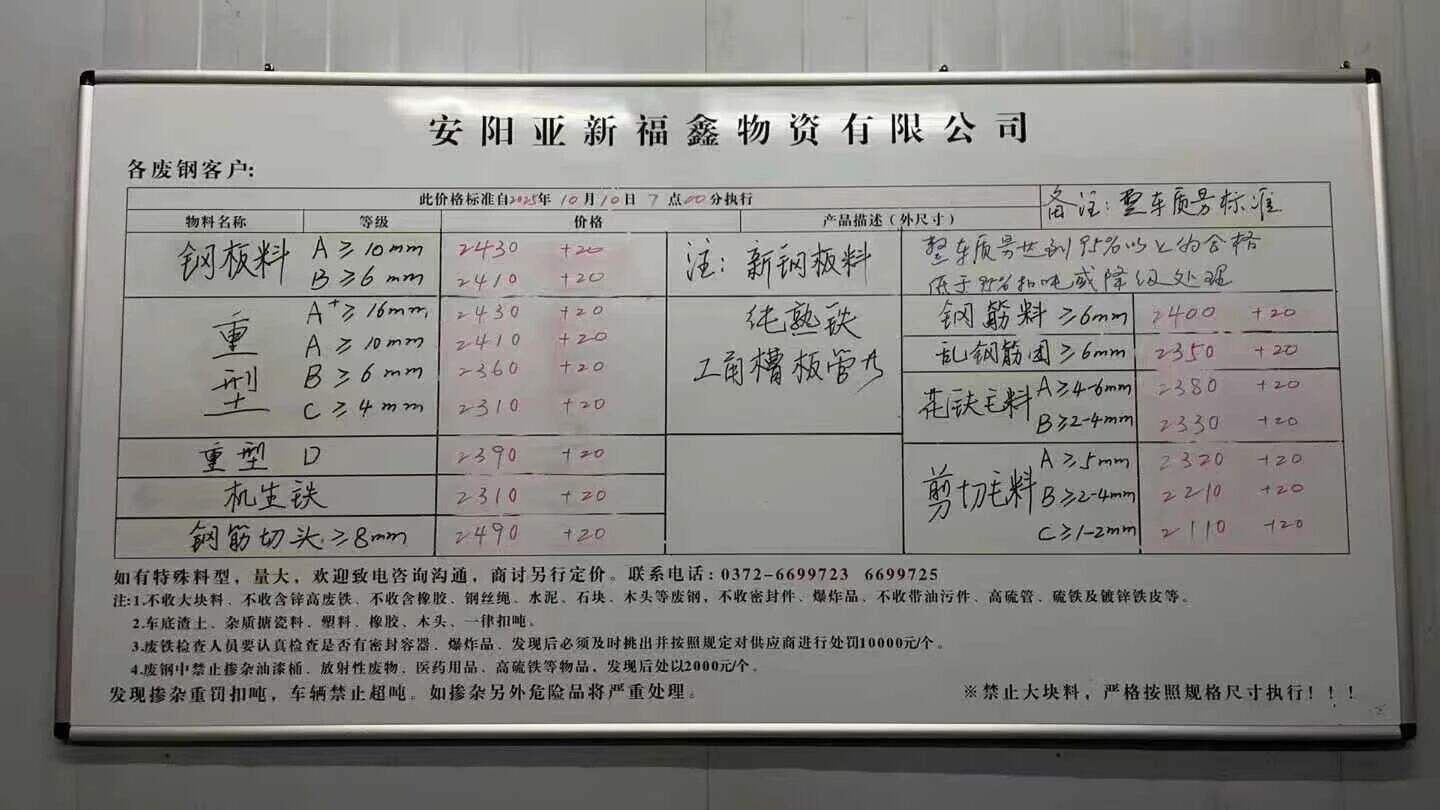 安阳亚新福鑫物资有限公司
各废钢客户:
此价格标准自2025年10月10日 7点00分执行
备注:整车质量标准
物料名称 等级 价格 产品描述(外尺寸)
整车质量达到95%以上的合格
低于95%扣吨或降级处理
钢板料 A≥10mm 2430 +20
B≥6mm 2410 +20
注:新钢板料
重型 A+≥16mm 2430 +20
A≥10mm 2410 +20
B≥6mm 2360 +20
C≥4mm 2310 +20
纯熟铁
工角槽板管
重型 D 2390 +20
机生铁 2310 +20
钢筋切头≥8mm 2490 +20
钢筋料≥6mm 2400 +20
乱钢筋团≥6mm 2350 +20
花铁毛料 A≥4-6mm 2380 +20
B≥2-4mm 2330 +20
剪切毛料 A≥5mm 2320 +20
B≥2-4mm 2210 +20
C≥1-2mm 2110 +20
如有特殊料型,量大,欢迎致电咨询沟通,商讨另行定价。联系电话:0372-6699723 6699725
注:1.不收大块料、不收含锌高废铁、不收含橡胶、钢丝绳、水泥、石块、木头等废钢,不收密封件、爆炸品、不收带油污件、高硫管、硫铁及镀锌铁皮等。
2.车底渣土、杂质搪瓷料、塑料、橡胶、木头、一律扣吨。
3.废铁检查人员要认真检查是否有密封容器、爆炸品、发现后必须及时挑出并按照规定对供应商进行处罚10000元/个。
4.废钢中禁止掺杂油漆桶、放射性废物、医药用品、高硫铁等物品,发现后处以2000元/个。
发现掺杂重罚扣吨,车辆禁止超吨。如掺杂另外危险品将严重处理。
※禁止大块料,严格按照规格尺寸执行!!!